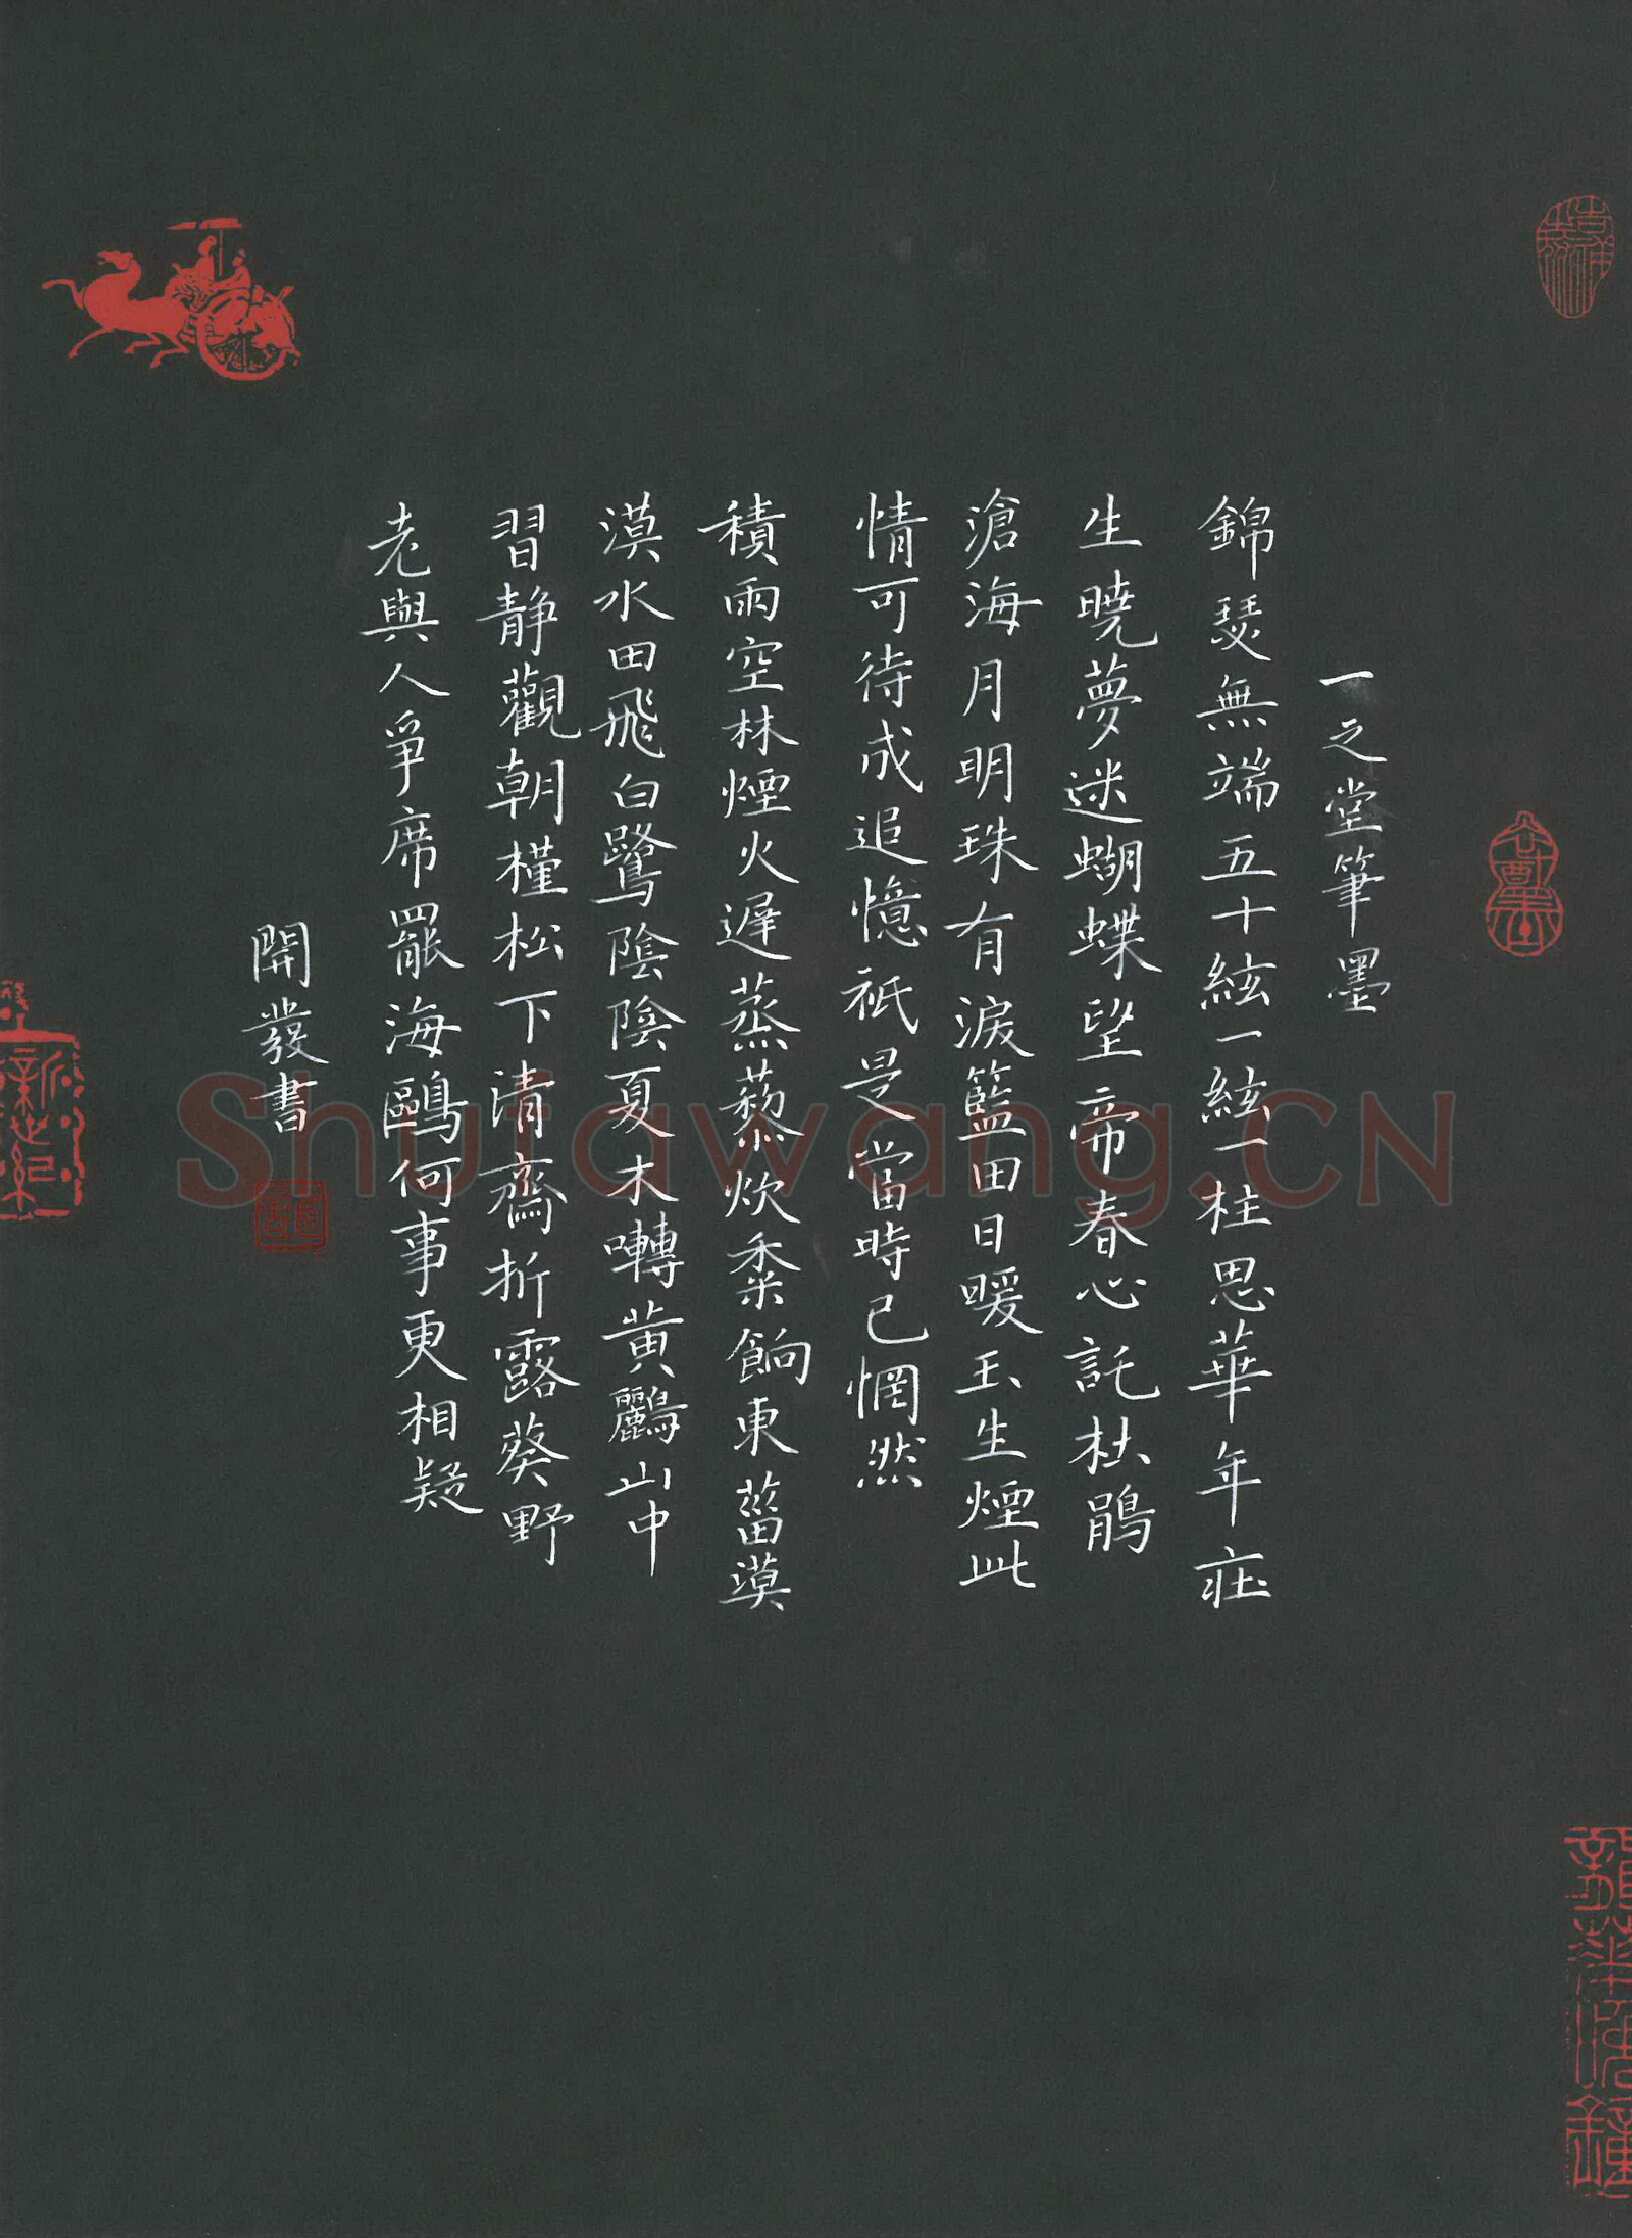 一之堂筆墨
錦瑟無端五十絃一絃一柱思華年莊
生曉夢迷蝴蝶望帝春心託杜鵑
滄海月明珠有淚籃田日暖玉生煙此
情可待成追憶祇是當時已惘然
積雨空林煙火遲蒸藜炊黍餉東菑漠
漠水田飛白鷺陰陰夏木囀黃鸝山中
習靜觀朝槿松下清齋折露葵野
老與人爭席罷海鷗何事更相疑
開發書
Shufawang.CN